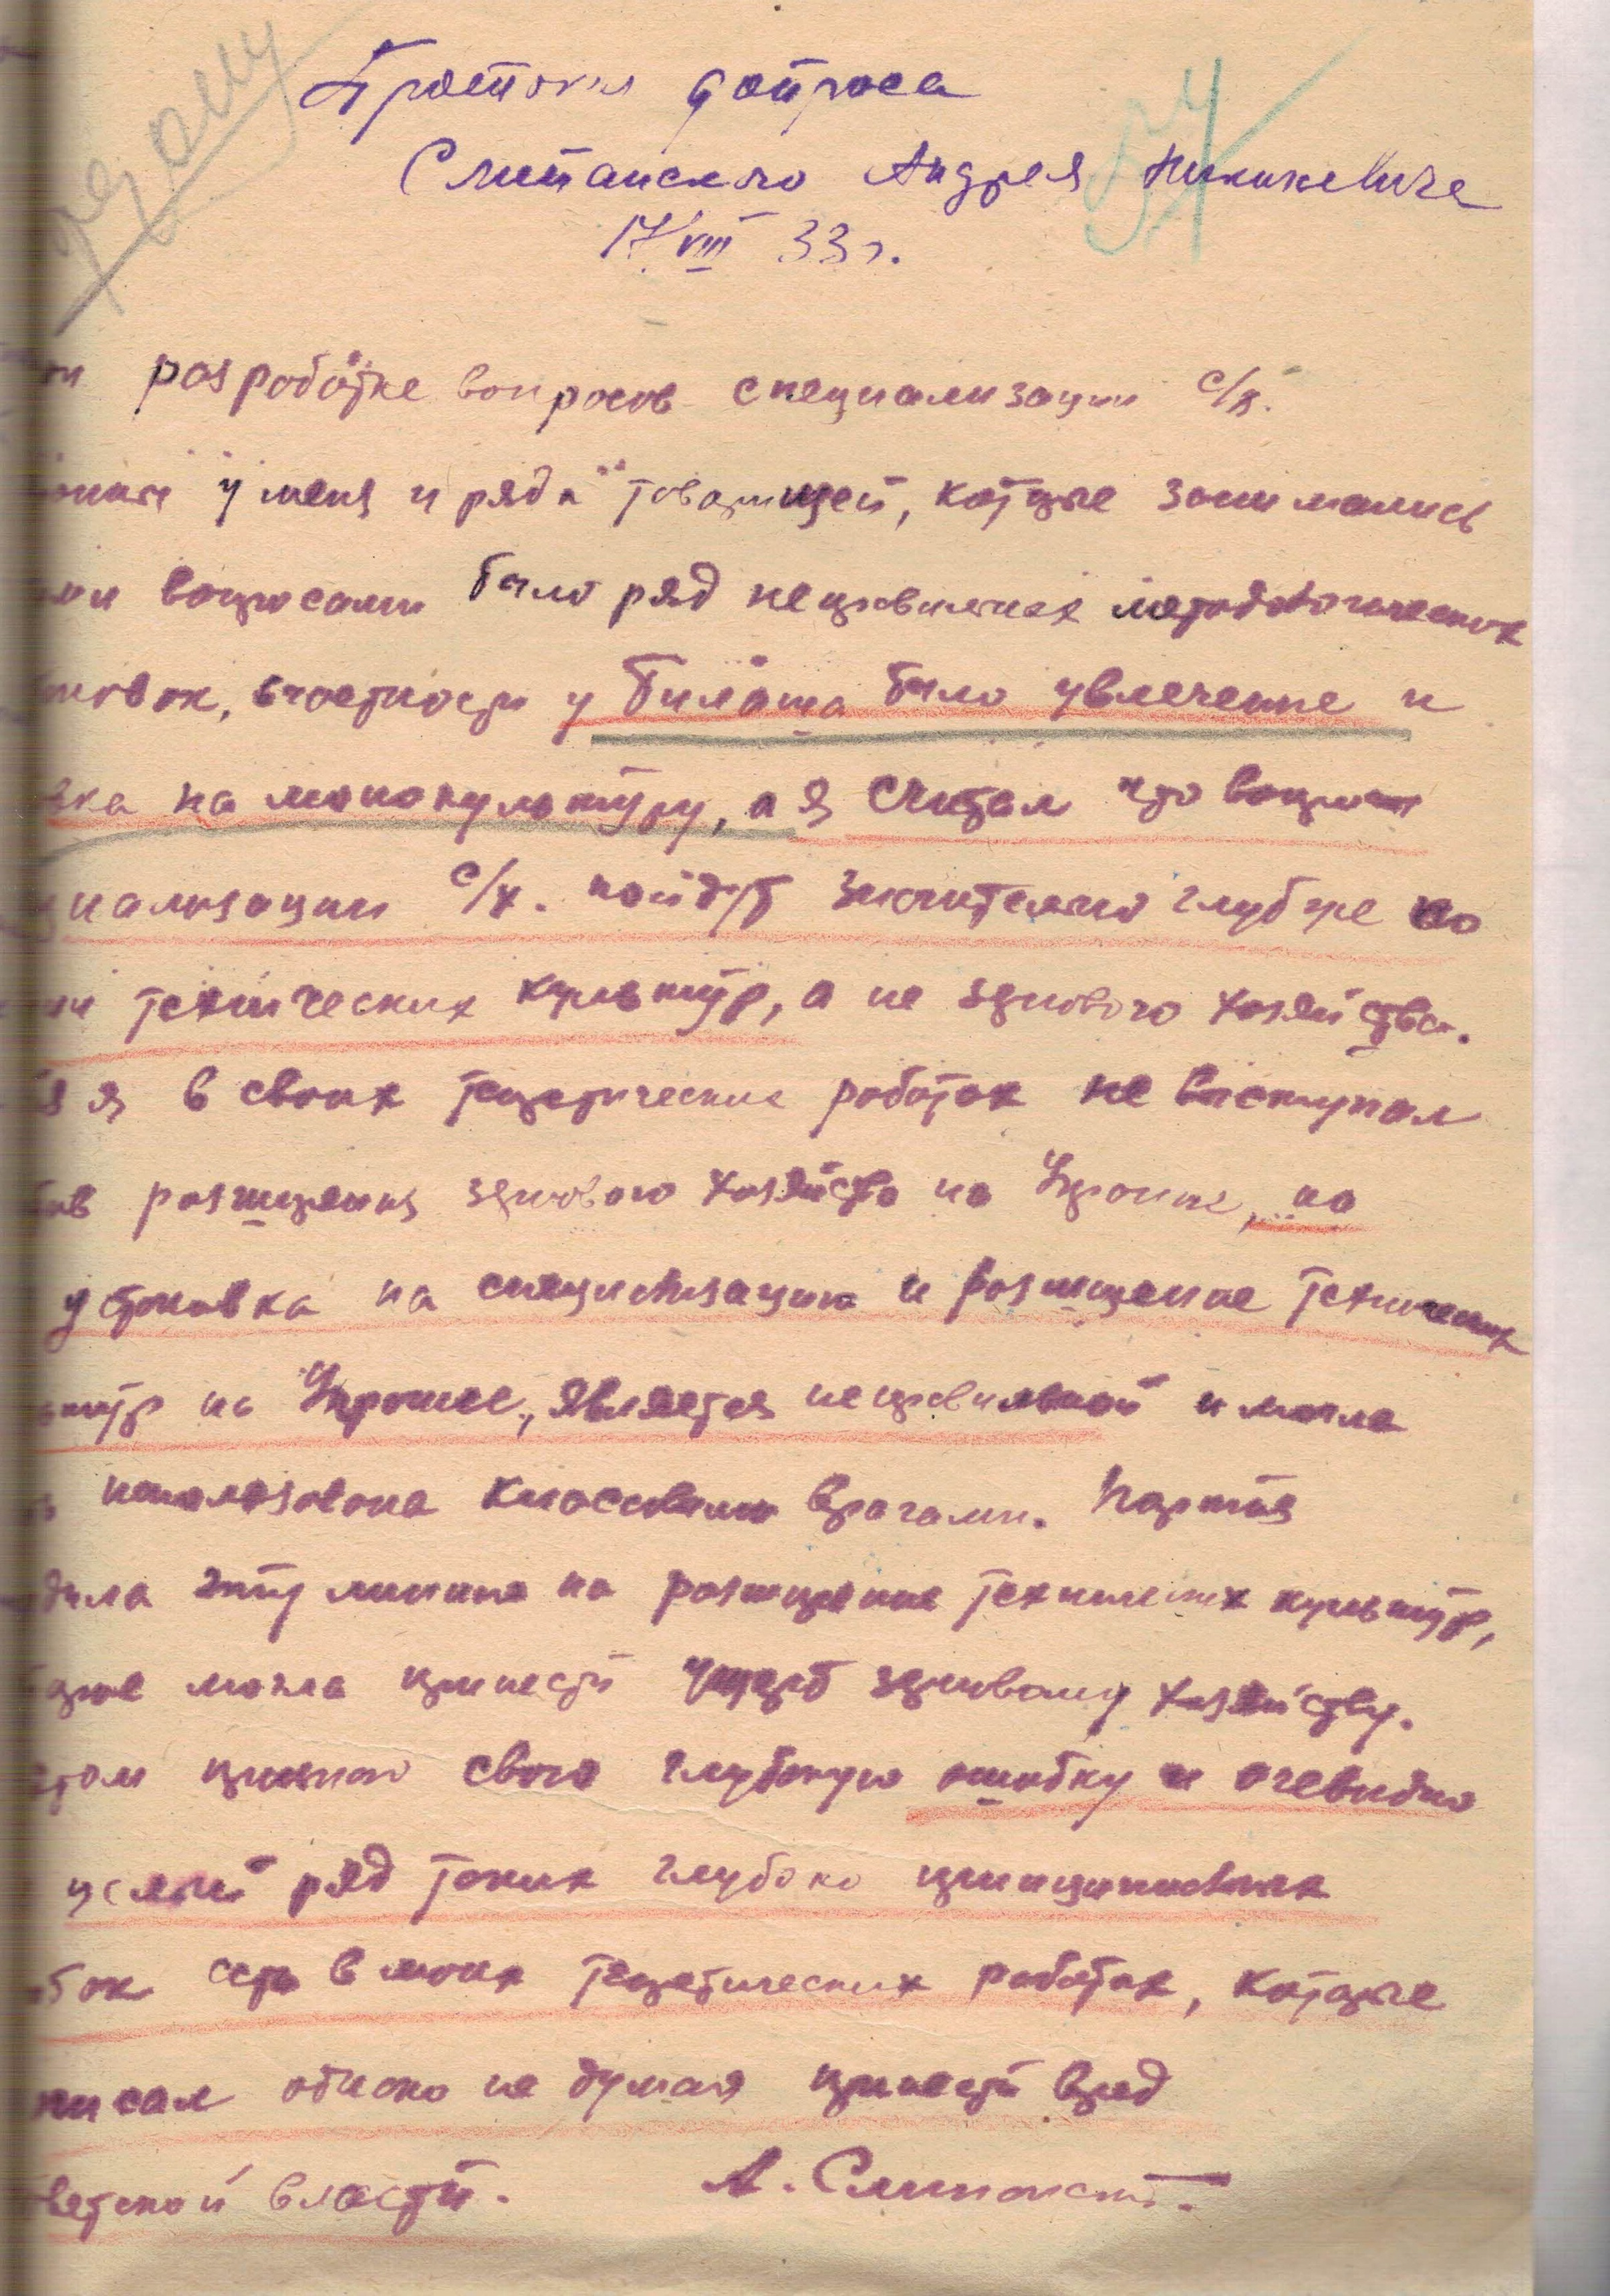 Протокол допроса
Слипанского Андрея Никикевича
17/VIII 33 г.
розроботке вопросов специализации с/х.
у меня и ряда товарищей, которые занимались
вопросами было ряд неправильных методологических
вок, вчастности у Билаша было увлечение и
вка на монокультуру, а я считал что вопросы
циализации с/х. пойдут значительно глубже по
технических культур, а не зернового хозяйства.
я в своих теоретических работах не выступал
тив розширения зернового хозяйства на Украине, но
установка на специализацию и розширение технических
ьтур на Украине, является неправильной и могла
использована классовыми врагами. Партия
дила эту линию на розширение технических культур,
торое могла принести ущерб зерновому хозяйству.
этом признаю свою глубокую ошибку и очевидно
целый ряд таких глубоко принципиальных
бок есть в моих теоретических работах, которые
писал однако не думая принести вред
ветской власти. А. Слипанский.